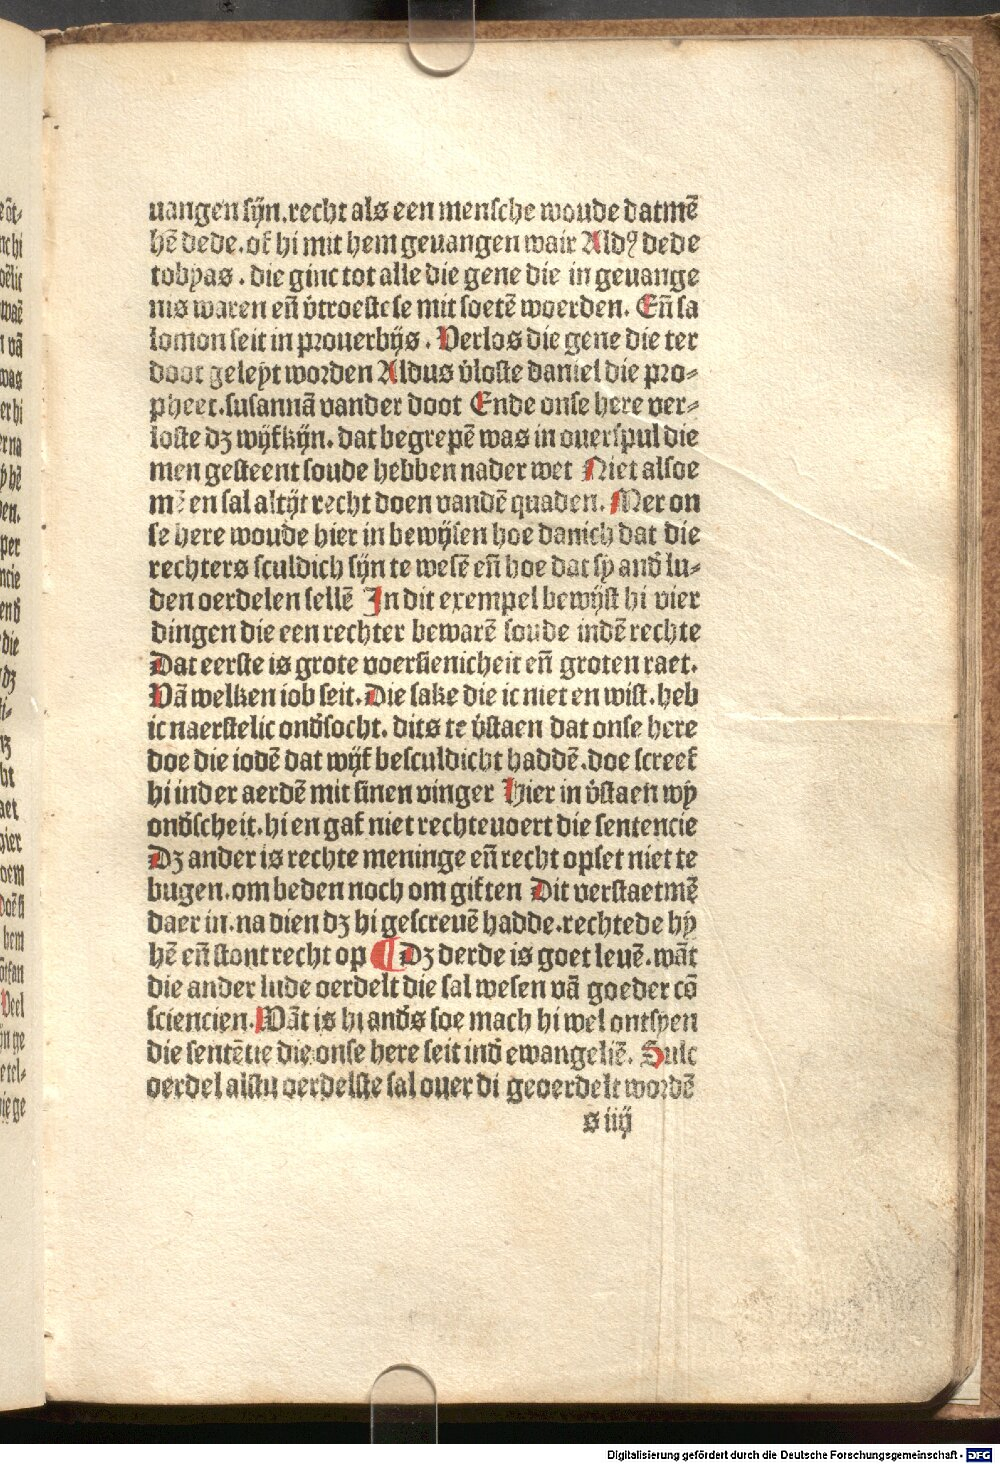 uangen sijn.recht als een mensche woude datmē
hē dede.of hi mit hem geuangen wair Aldꝰ dede
tobyas. die ginc tot alle die gene die in geuange
nis waren eñ v̄troeste se mit soetē woerden. Eñ sa
lomon seit in prouerbijs. Verlos die gene die ter
doot geleyt worden Aldus v̄loste daniel die pro-
pheet.susannā vander doot Ende onse here ver-
loste dʒ wijfkijn. dat begrepē was in ouerspul die
men gesteent soude hebben nader wet Niet alsoe
mē en sal altijt recht doen vandē quaden. Mer on
se here woude hier in bewijsen hoe danich dat die
rechters sculdich sijn te wesē eñ hoe dat sy and̄ lu-
den oerdelen sellē In dit exempel bewijst hi vier
dingen die een rechter bewarē soude indē rechte
Dat eerste is grote voersienicheit eñ groten raet.
Vā welken iob seit. Die sake die ic niet en wist. heb
ic naerstelic ond̄socht. dits te v̄staen dat onse here
doe die iodē dat wijf besculdicht haddē.doe screef
hi in der aerdē mit sinen vinger Hier in v̄staen wy
ond̄scheit.hi en gaf niet rechteuoert die sentencie
Dʒ ander is rechte meninge eñ recht opset niet te
bugen.om beden noch om giften Dit verstaetmē
daer in.na dien dʒ hi gescreuē hadde.rechtede hy
hē eñ stont recht op ¶ Dʒ derde is goet leuē.wāt
die ander lude oerdelt die sal wesen vā goeder cō
sciencien. Wāt is hi and̄s soe mach hi wel ontsyen
die sentētie die onse here seit ind̄ ewangeliē. Sulc
oerdel alstu oerdelste sal ouer di geoerdelt wordē
s iiij
Digitalisierung gefördert durch die Deutsche Forschungsgemeinschaft - DFG